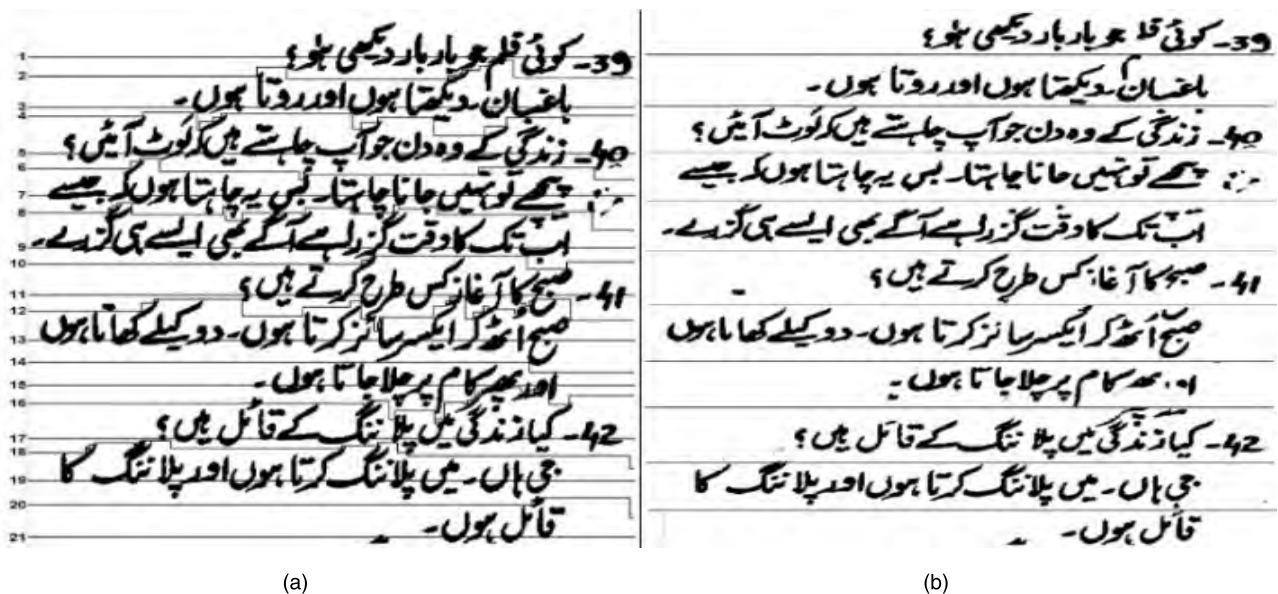 1
2
3
4
5
6
7
8
9
10
11
12
13
14
15
16
17
18
19
20
21
39- کوئی فلم جو بار بار دیکھی ہو؟
باغبان۔ دیکھتا ہوں اور روتا ہوں۔
40- زندگی کے وہ دن جو آپ چاہتے ہیں کہ لوٹ آئیں؟
پیچھے تو نہیں جانا چاہتا۔ بس یہ چاہتا ہوں کہ جیسے
اب تک کا وقت گزرا ہے آگے بھی ایسے ہی گزرے۔
41- صبح کا آغاز کس طرح کرتے ہیں؟
صبح اُٹھ کر ایکسرسائز کرتا ہوں۔ دو کیلے کھاتا ہوں
اور پھر کام پر چلا جاتا ہوں۔
42- کیا زندگی میں پلاننگ کے قائل ہیں؟
جی ہاں۔ میں پلاننگ کرتا ہوں اور پلاننگ کا
قائل ہوں۔
(a)
39- کوئی جو بار بار دیکھی ہو؟
باغبان۔ دیکھتا ہوں اور روتا ہوں۔
40- زندگی کے وہ دن جو آپ چاہتے ہیں کہ لوٹ آئیں؟
پیچھے تو نہیں جانا چاہتا۔ بس یہ چاہتا ہوں کہ جیسے
اب تک کا وقت گزرا ہے آگے بھی ایسے ہی گزرے۔
41- صبح کا آغاز کس طرح کرتے ہیں؟
صبح اُٹھ کر ایکسرسائز کرتا ہوں۔ دو کیلے کھاتا ہوں
کام پر چلا جاتا ہوں۔
42- کیا زندگی میں پلاننگ کے قائل ہیں؟
جی ہاں۔ میں پلاننگ کرتا ہوں اور پلاننگ کا
قائل ہوں۔
(b)